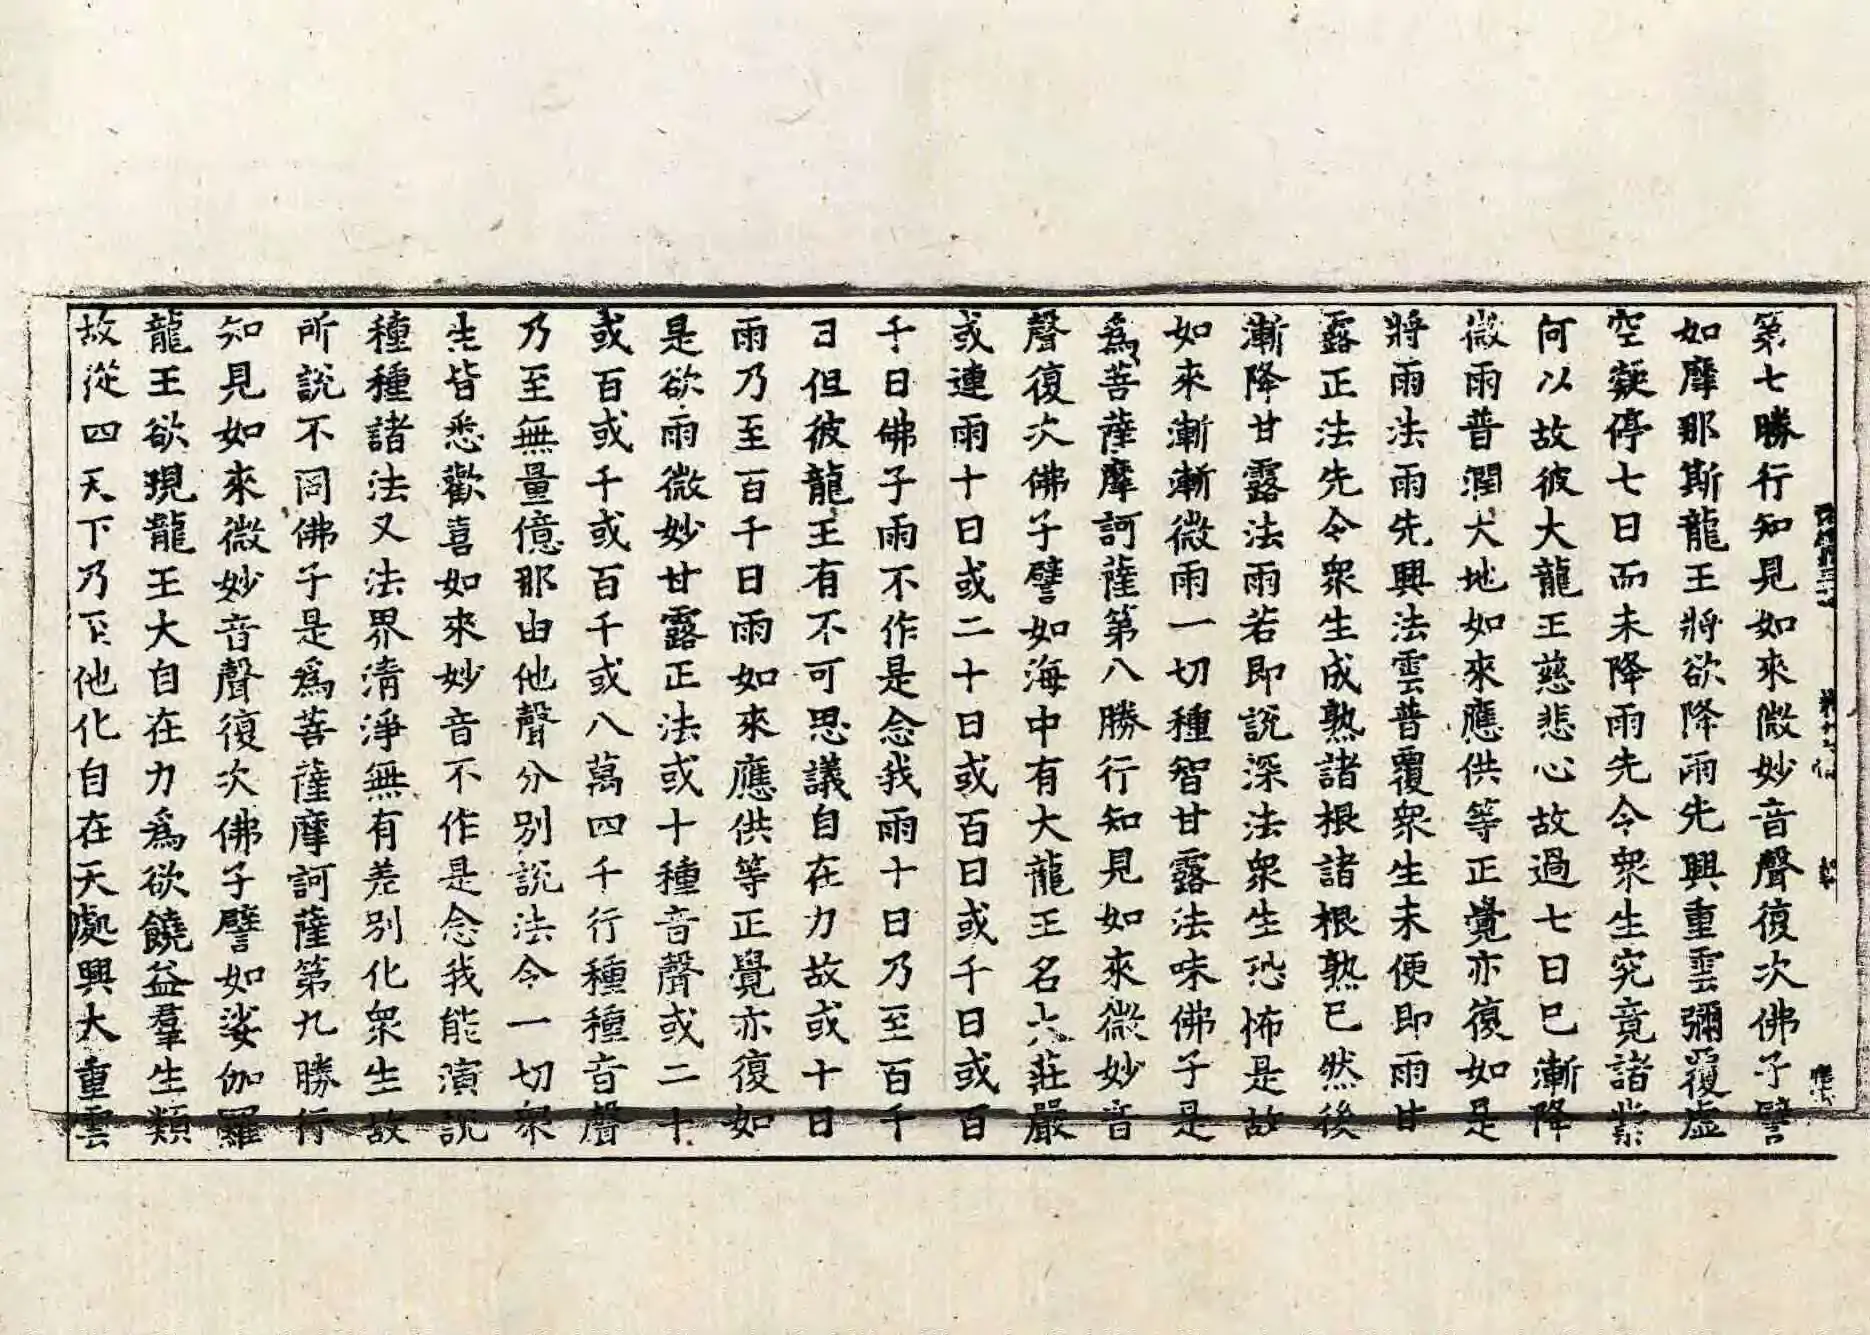 第七勝行知見如來微妙音聲復次佛子譬
如摩那斯龍王將欲降雨先興重雲彌覆虛
空凝停七日而未降雨先令衆生究竟諸業
何以故彼大龍王慈悲心故過七日已漸降
微雨普潤大地如來應供等正覺亦復如是
將雨法雨先興法雲普覆衆生未便即雨甘
露正法先令衆生成熟諸根諸根熟已然後
漸降甘露法雨若即說深法衆生恐怖是故
如來漸漸微雨一切種智甘露法味佛子是
為菩薩摩訶薩第八勝行知見如來微妙音
聲復次佛子譬如海中有大龍王名大莊嚴
或連雨十日或二十日或百日或千日或百
千日佛子雨不作是念我雨十日乃至百千
日但彼龍王有不可思議自在力故或十日
雨乃至百千日雨如來應供等正覺亦復如
是欲雨微妙甘露正法或十種音聲或二十
或百或千或百千或八萬四千行種種音聲
乃至無量億那由他聲分別說法令一切衆
生皆悉歡喜如來妙音不作是念我能演說
種種諸法又法界清淨無有差別化衆生故
所說不同佛子是為菩薩摩訶薩第九勝行
知見如來微妙音聲復次佛子譬如娑伽羅
龍王欲現龍王大自在力為欲饒益羣生類
故從四天下乃至他化自在天處興大重雲